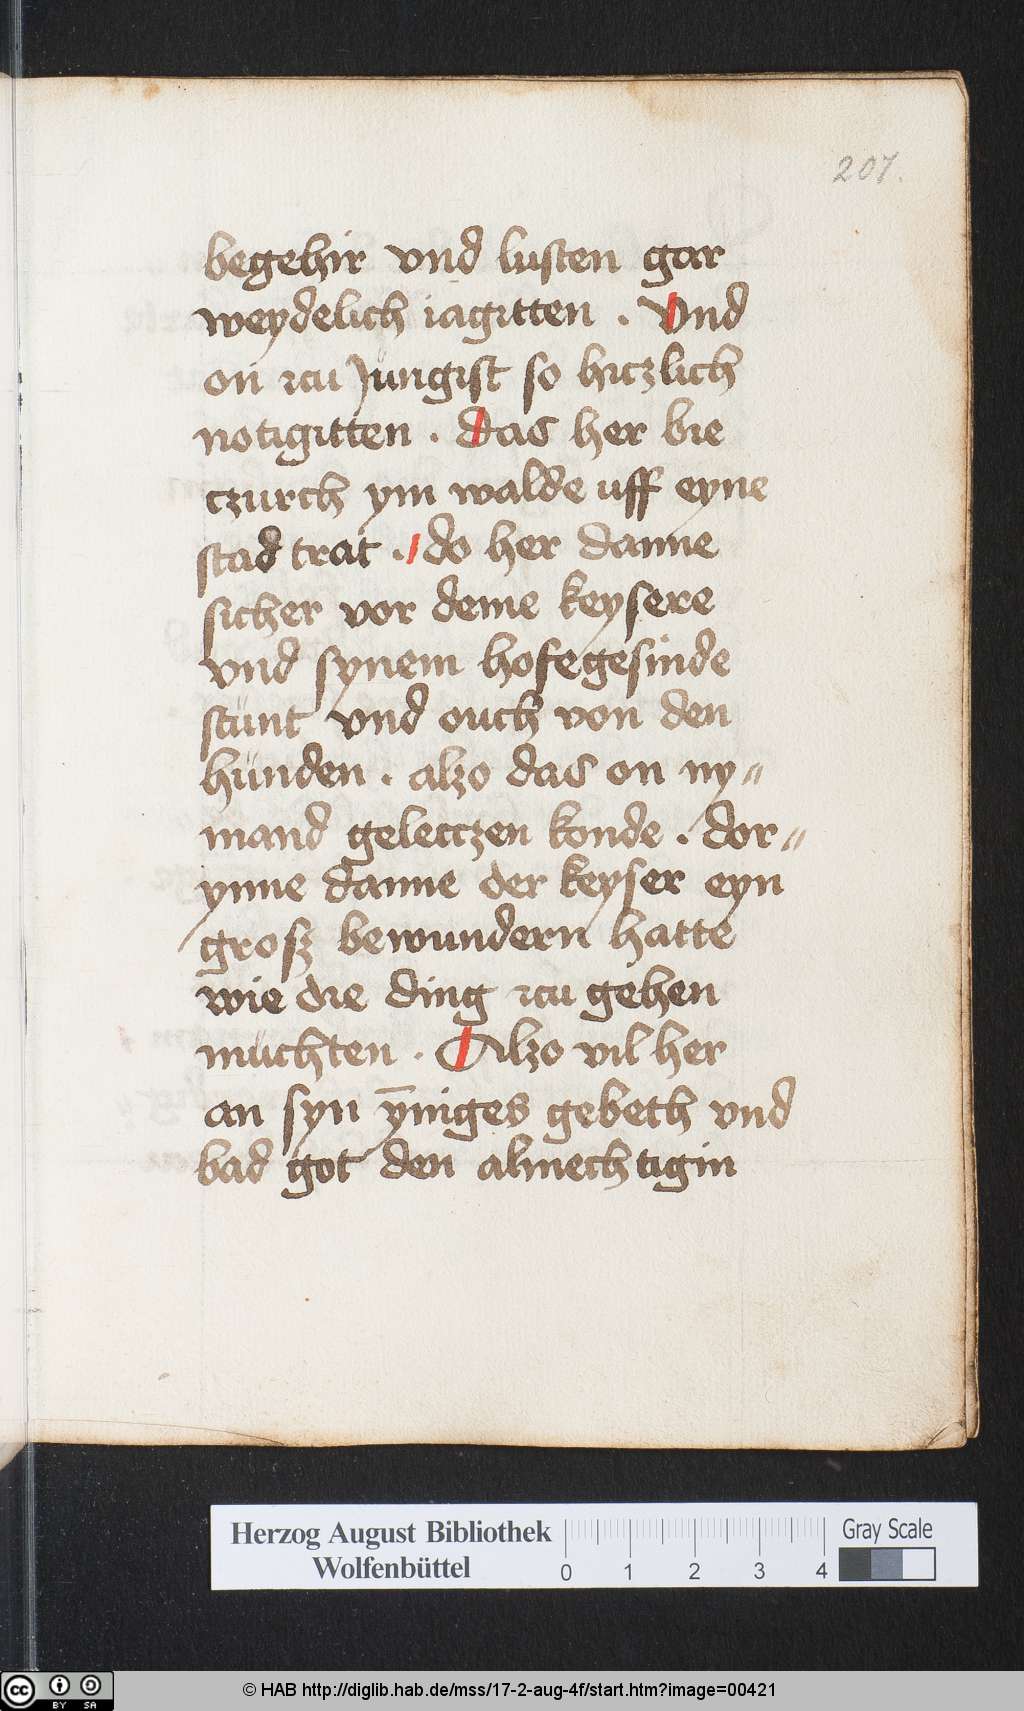 207.
begehir vnd lusten gar
weydelich iagitten . Vnd
on czu Jungist so hiczlich
notigitten . das her bie
czurch ym walde uff eyne
stad trat . do her danne
sicher vor deme keysere
vnd synem hofegesinde
stunt vnd ouch von den
hunden . alzo das on ny„
mand geletczen konde . dor„
ynne danne der keyser eyn
grosz bewundern hatte
wie die ding czu gehen
muchten . Alzo vil her
an syn ȳniges gebeth vnd
bad got den almechtigin
Herzog August Bibliothek
Wolfenbüttel
0 1 2 3 4
Gray Scale
cc BY SA
© HAB http://diglib.hab.de/mss/17-2-aug-4f/start.htm?image=00421